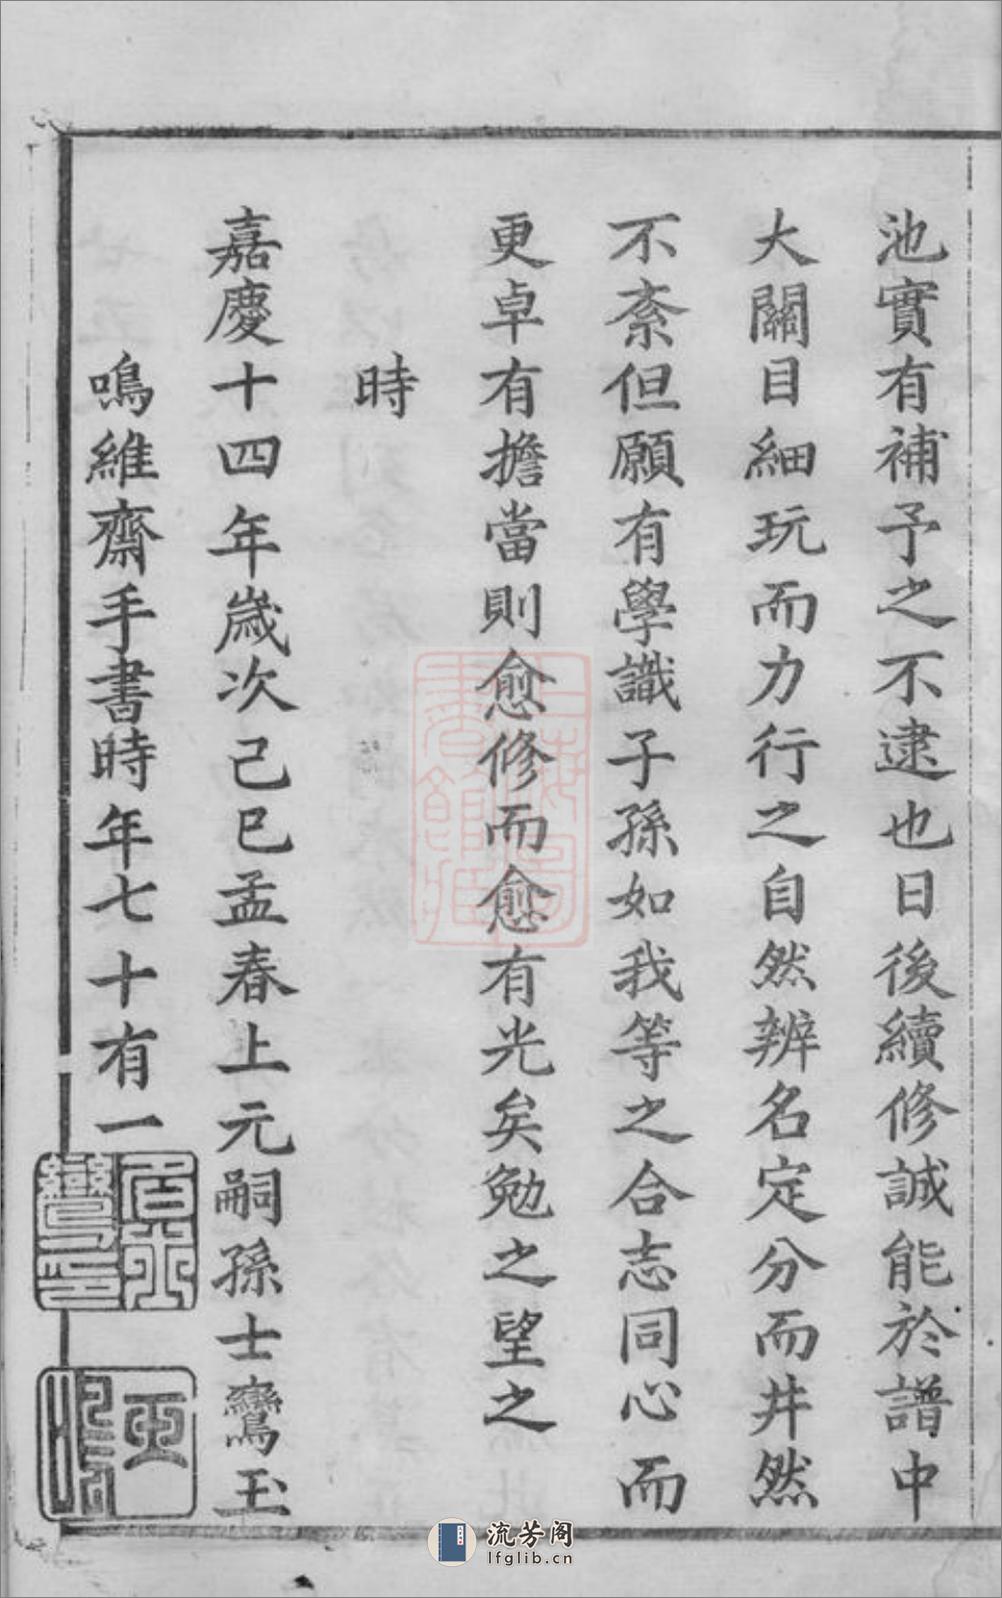 池實有補予之不逮也日後續修誠能於譜中
大關目細玩而力行之自然辨名定分而井然
不紊但願有學識子孫如我等之合志同心而
更卓有擔當則愈修而愈有光矣勉之望之
時
嘉慶十四年歲次己巳孟春上元嗣孫士鸞玉
鳴維齋手書時年七十有一
上海圖書館藏
流芳阁
lfglib.cn